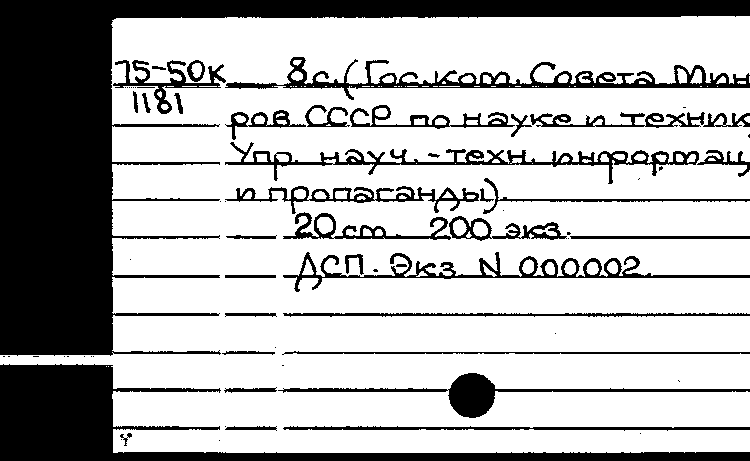 75-50к 8с. (Гос.ком. Совета Мин
1181
ров СССР по науке и техник
Упр. науч.-техн. информац
и пропаганды).
20 см. 200 экз.
ДСП. Экз. N 000002.